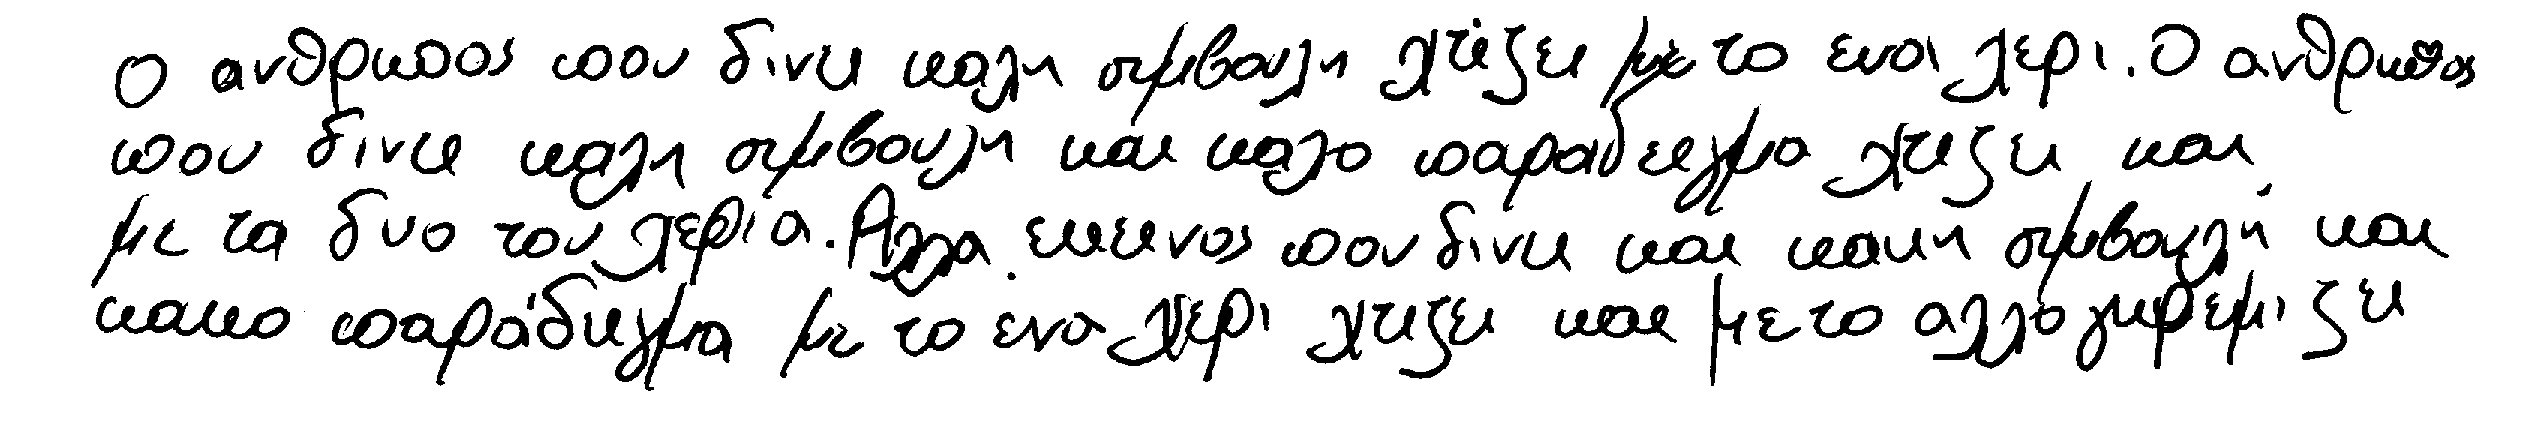 Ο ανθρωπος που δινει καλη συμβουλη χτιζει με το ενα χερι. Ο ανθρωπος
που δινει καλη συμβουλη και καλο παραδειγμα χτιζει και
με τα δυο του χερια. Αλλα εκεινος που δινει και κακη συμβουλή και
κακο παράδειγμα με το ενα χερι χτιζει και με το αλλο γκρεμιζει